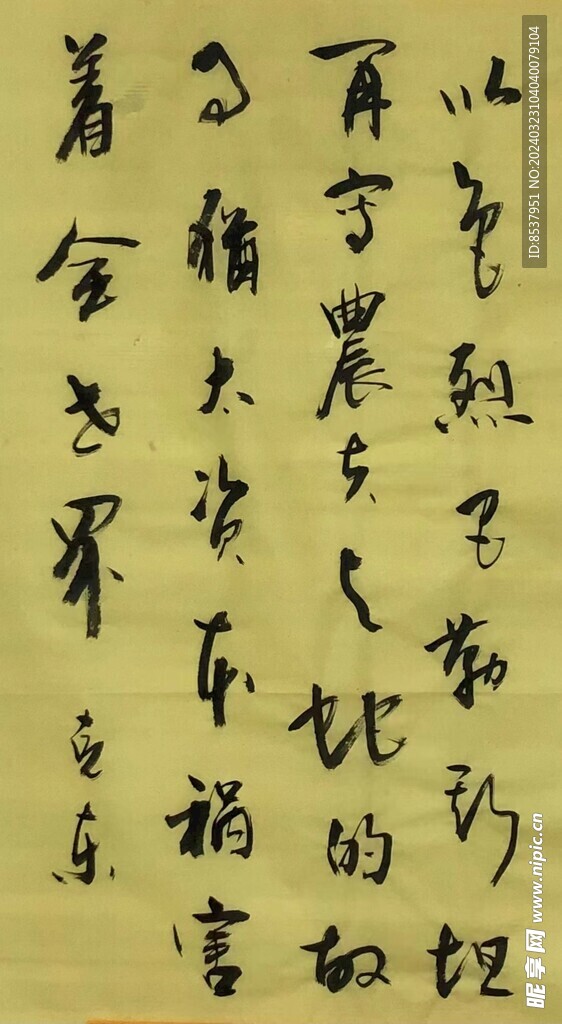 以色烈巴勒斯坦
再写農夫与蛇的故
事猶太资本祸害
着全世界 克东
ID:8537951 NO:20240323104040079104
昵享网 www.nipic.cn